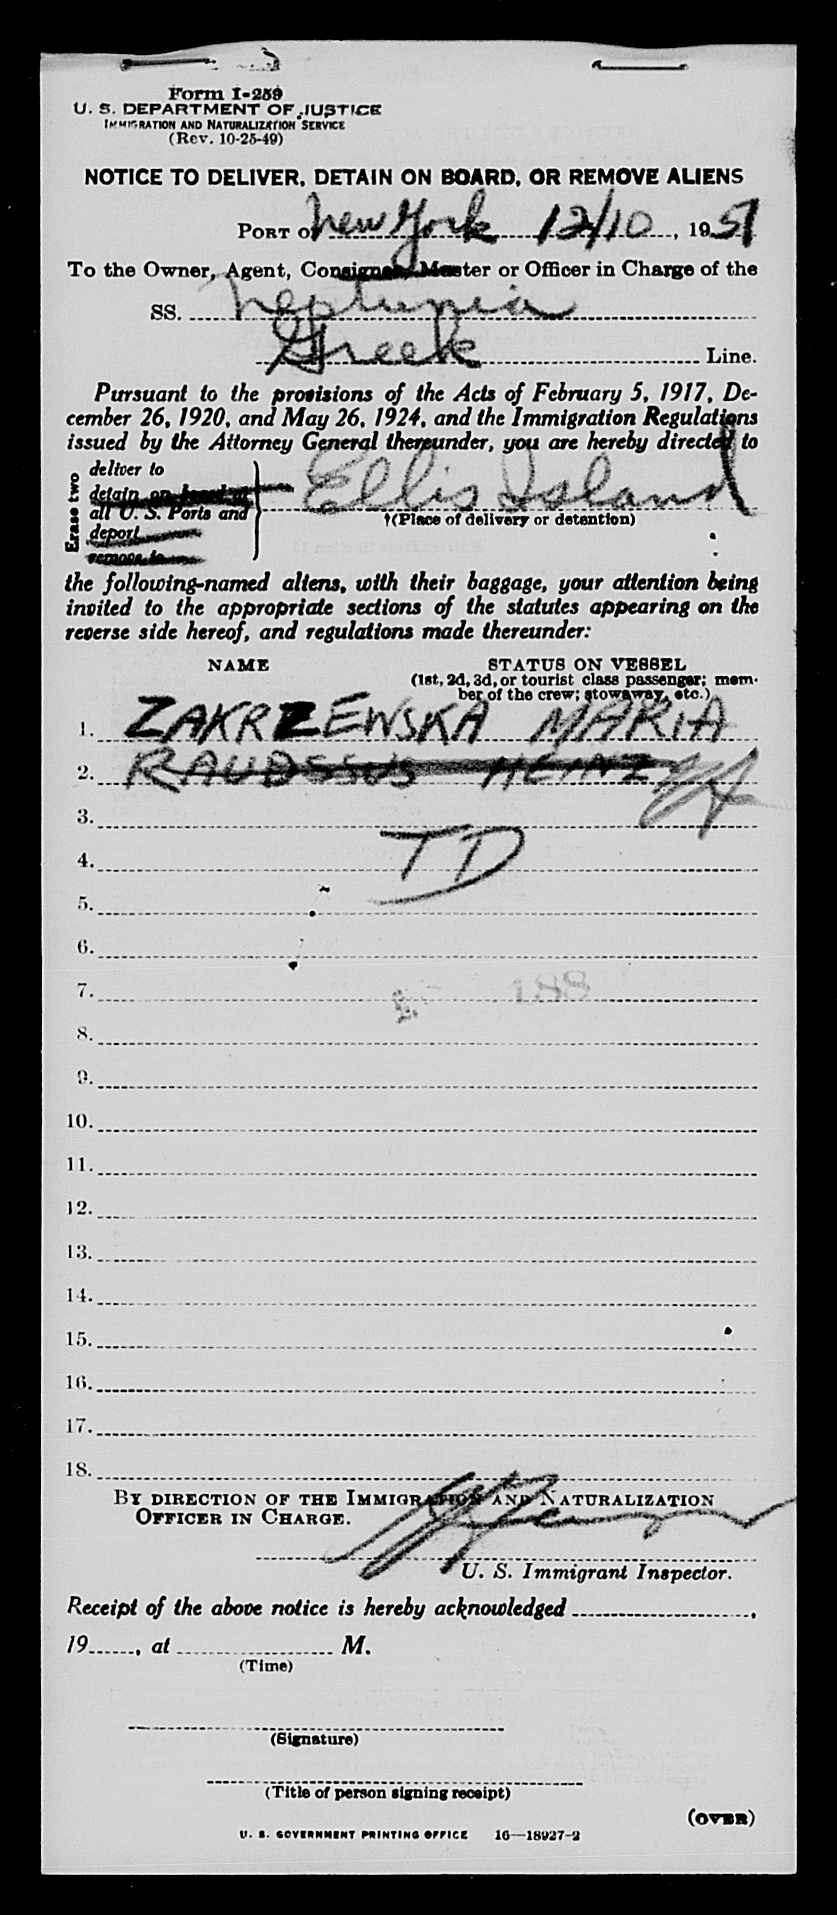 Form I-259
U. S. DEPARTMENT OF JUSTICE
IMMIGRATION AND NATURALIZATION SERVICE
(Rev. 10-25-49)
NOTICE TO DELIVER, DETAIN ON BOARD, OR REMOVE ALIENS
PORT of New York 12/10, 1951
To the Owner, Agent, Consignee, Master or Officer in Charge of the
SS. Neptunia
Greek Line.
Pursuant to the provisions of the Acts of February 5, 1917, De-
cember 26, 1920, and May 26, 1924, and the Immigration Regulations
issued by the Attorney General thereunder, you are hereby directed to
Erase two
deliver to
detain on board at
all U. S. Ports and
deport
remove to
Ellis Island
†(Place of delivery or detention)
the following-named aliens, with their baggage, your attention being
invited to the appropriate sections of the statutes appearing on the
reverse side hereof, and regulations made thereunder:
NAME STATUS ON VESSEL
(1st, 2d, 3d, or tourist class passenger; mem-
ber of the crew; stowaway, etc.)
1. ZAKRZEWSKA MARIA
2. RAUDSSUS HEINZ
3.
4. TD
5.
6.
7. 188
8.
9.
10.
11.
12.
13.
14.
15.
16.
17.
18.
BY DIRECTION OF THE IMMIGRATION AND NATURALIZATION
OFFICER IN CHARGE.
U. S. Immigrant Inspector.
Receipt of the above notice is hereby acknowledged ,
19 , at M.
(Time)
(Signature)
(Title of person signing receipt)
(OVER)
U. S. GOVERNMENT PRINTING OFFICE 16—18927-2